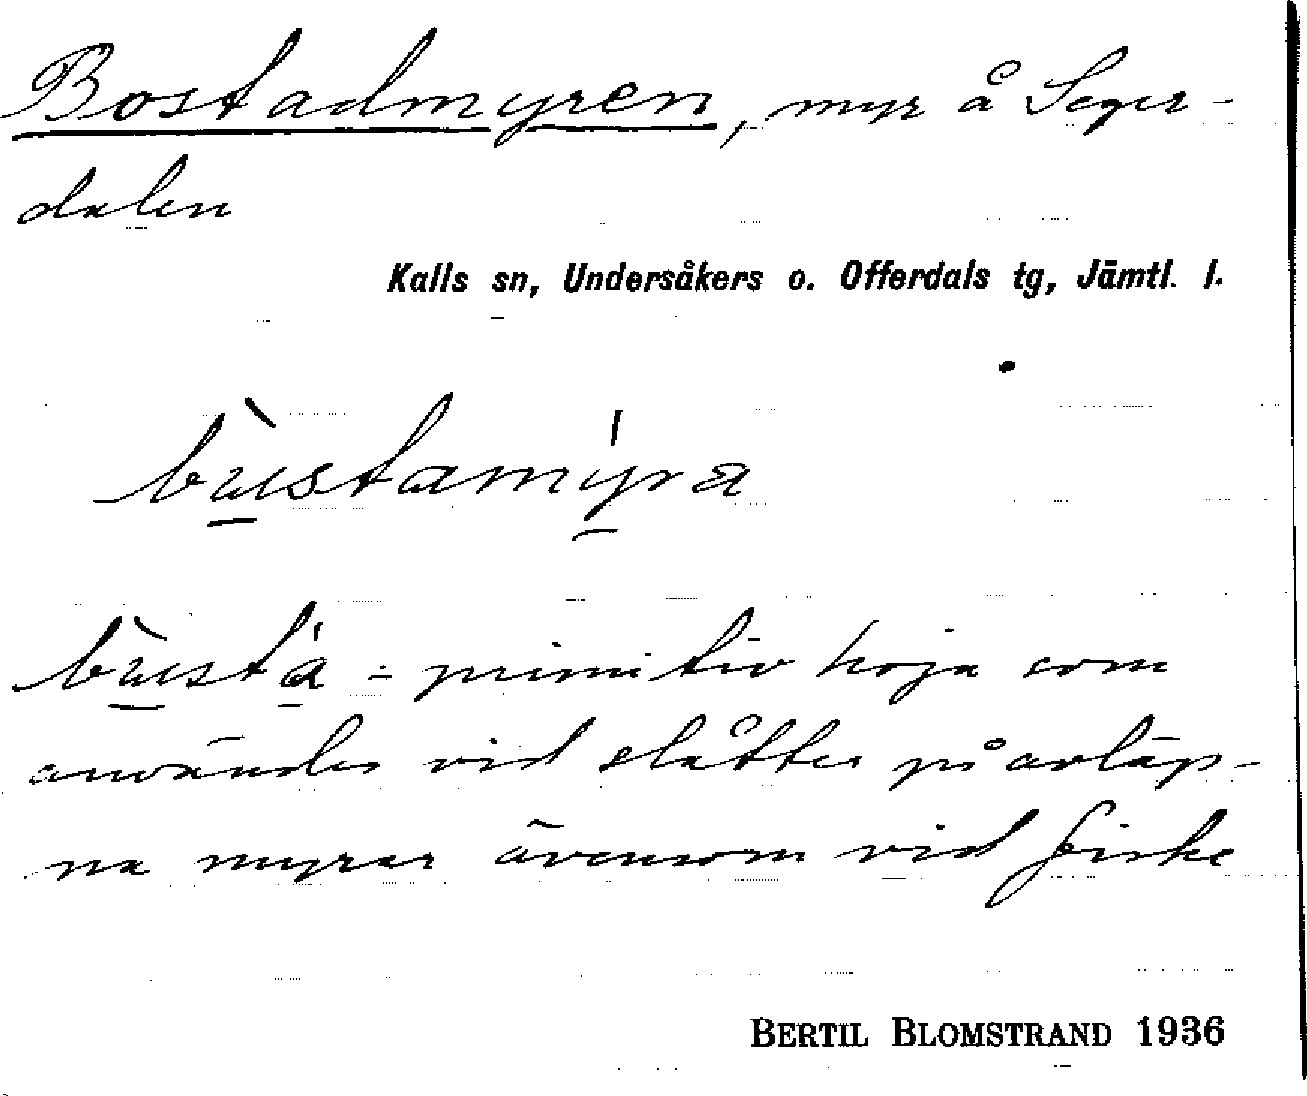 Bostadmyren, myr å Seger-
dalen
Kalls sn, Undersåkers o. Offerdals tg, Jämtl. l.
bùstamýra
bùstá = primitiv koja som
användes vid slåtter på avläg-
na myrar ävensom vid fiske
BERTIL BLOMSTRAND 1936